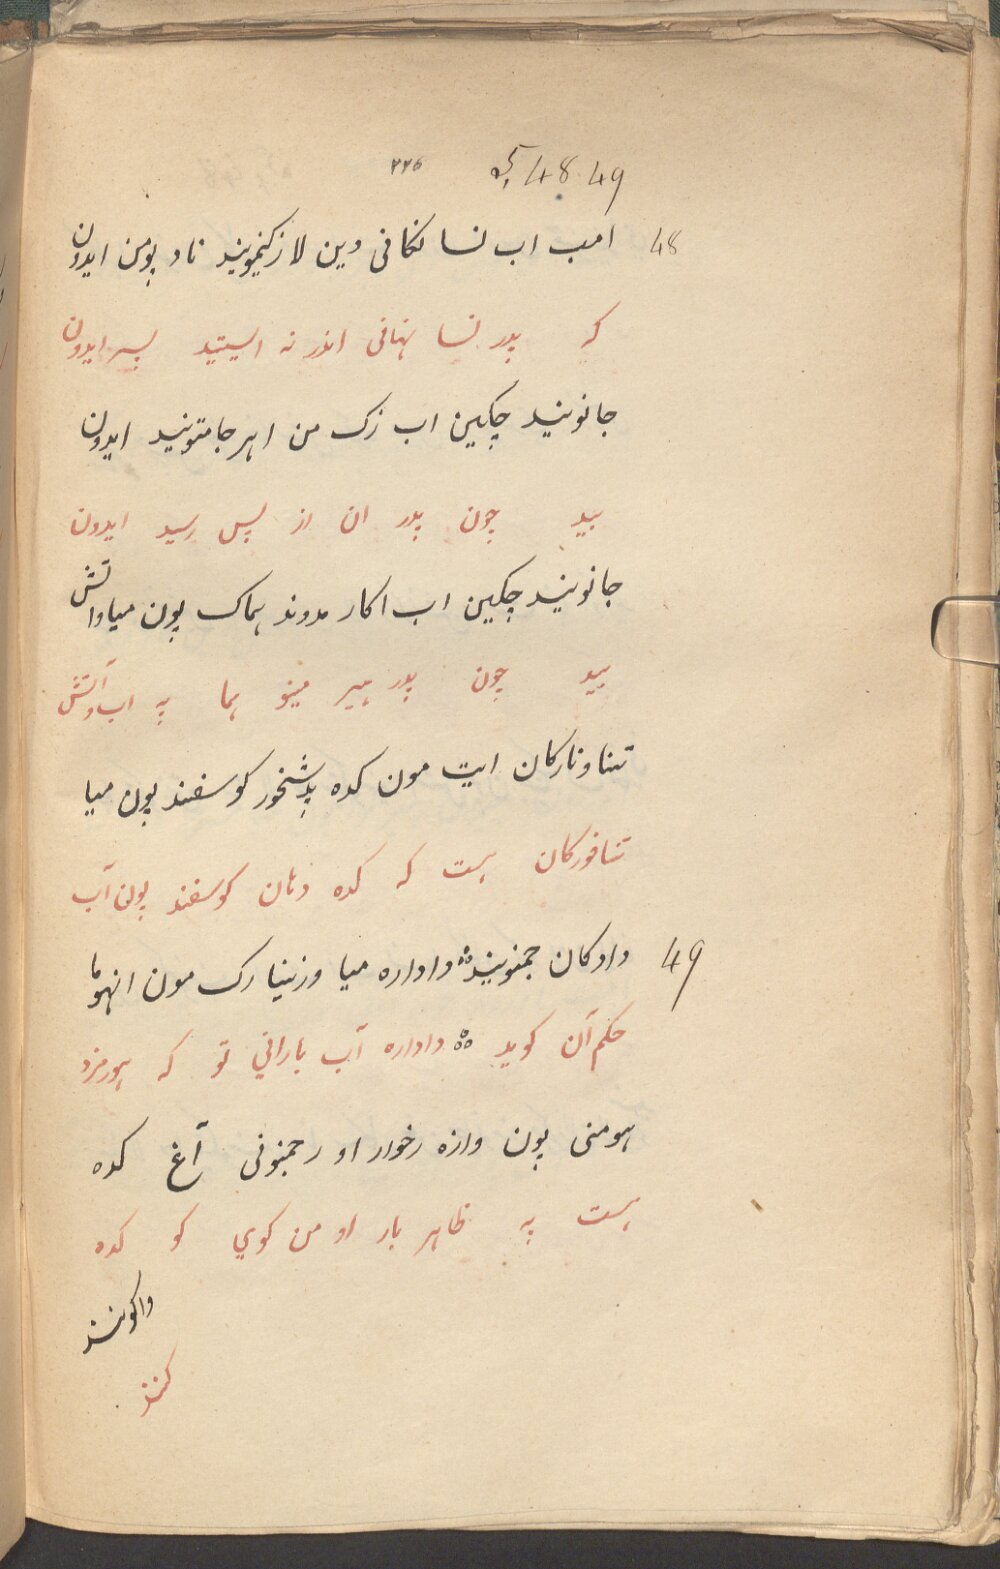 ۲۲۶ 48 49
48 امب اب نسا نکانی دین لا زکنیمونید ناد پومن ایدون
که پدر نسا نهانی اندر نه ایستید پسر ایدون
جانونید چکین اب زک من اهر جامتونید ایدون
بید چون پدر ان از پس رسید ایدون
جانونید چکین اب اکار مدوند هماک پون میا واتش
بید چون پدر هیر مینو هما په اب وآتش
تناونارکان ایت مون کده پدشخور کوسفند پون میا
تنافورکان هست که کده دهان کوسفند پون آب
49 دادکان جمنونید ؞ واداره میا وزنینا رک مون انهوما
حکم آن کوید ؞ داداره آب بارانی تو که هورمزد
هومنی پون وازه رخوار او رجمنونی آغ کده
هست په ظاهر بار او من کوي کو کده
واکونند
کنند